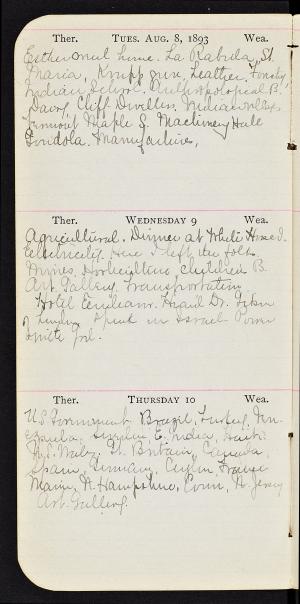 Ther. TUES. AUG. 8, 1893 Wea.
Esther and Lime. La Rabida, St.
Maria, Krupp gun, Leather, Forestry,
Indian School. Anthropological B.
Davy, Cliff Dwellers. Indian
Vermont Maple S. Machinery Hall
Gondola. Manufactures,
Ther. WEDNESDAY 9 Wea.
Agricultural. Dinner at White Horse I.
Electricity. Here I left the folks
Mines, Horticulture Children's B.
Art Gallery. Transportation
Hotel Heard Dr.
of London speak in Israel
Ther. THURSDAY 10 Wea.
U.S. Government Brazil, Turkey, Ven-
ezuela, E. India, Haiti
N.S. Wales, Gt. Britain, Canada,
Spain, Germany, Ceylon, France
Maine, N. Hampshire, Conn, N. Jersey
Art Gallery.